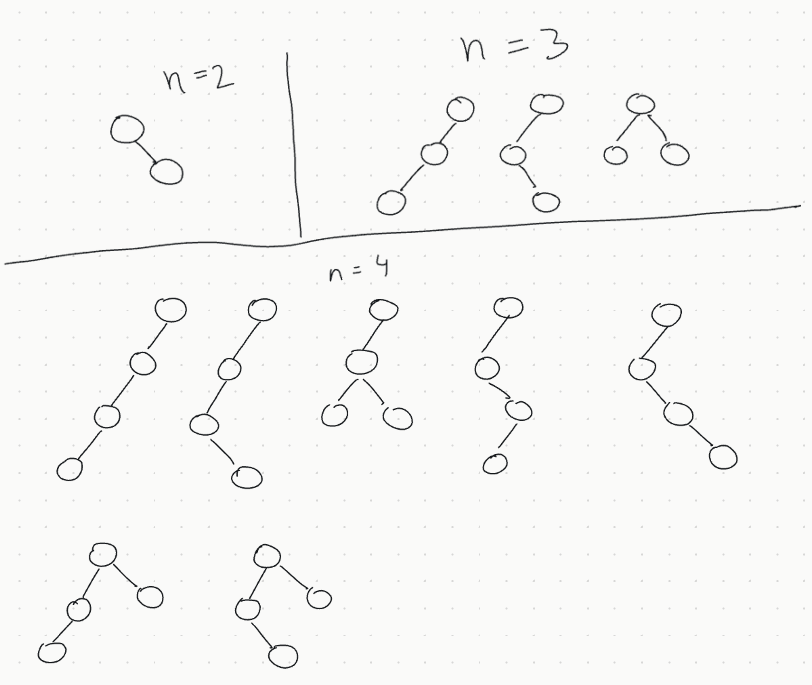 n = 2
n = 3
n = 4